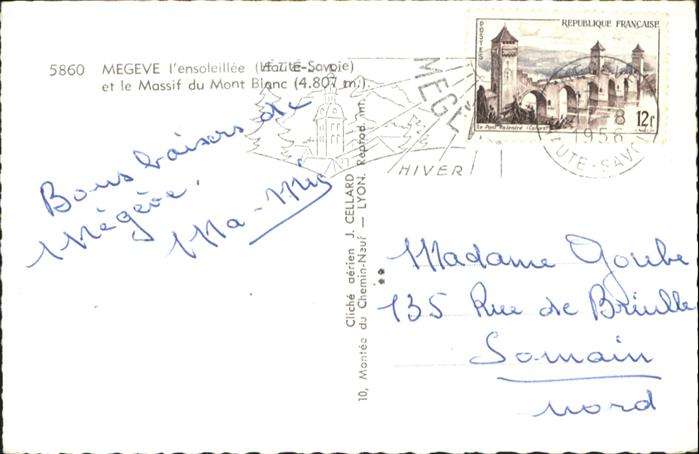 5860 MEGEVE l'ensoleillée (Haute-Savoie)
et le Massif du Mont Blanc (4.807 m.)
Bons baisers de
Mégève.
Ma-Mie
MEGÈVE
HIVER
POSTES
REPUBLIQUE FRANÇAISE
12f
Le Pont Valentré (Cahors)
-8
1956
HAUTE-SAVOIE
Cliché aérien J. CELLARD
10, Montée du Chemin-Neuf — LYON. Reprod. int.
Madame Goube
135 Rue de
Somain
Nord